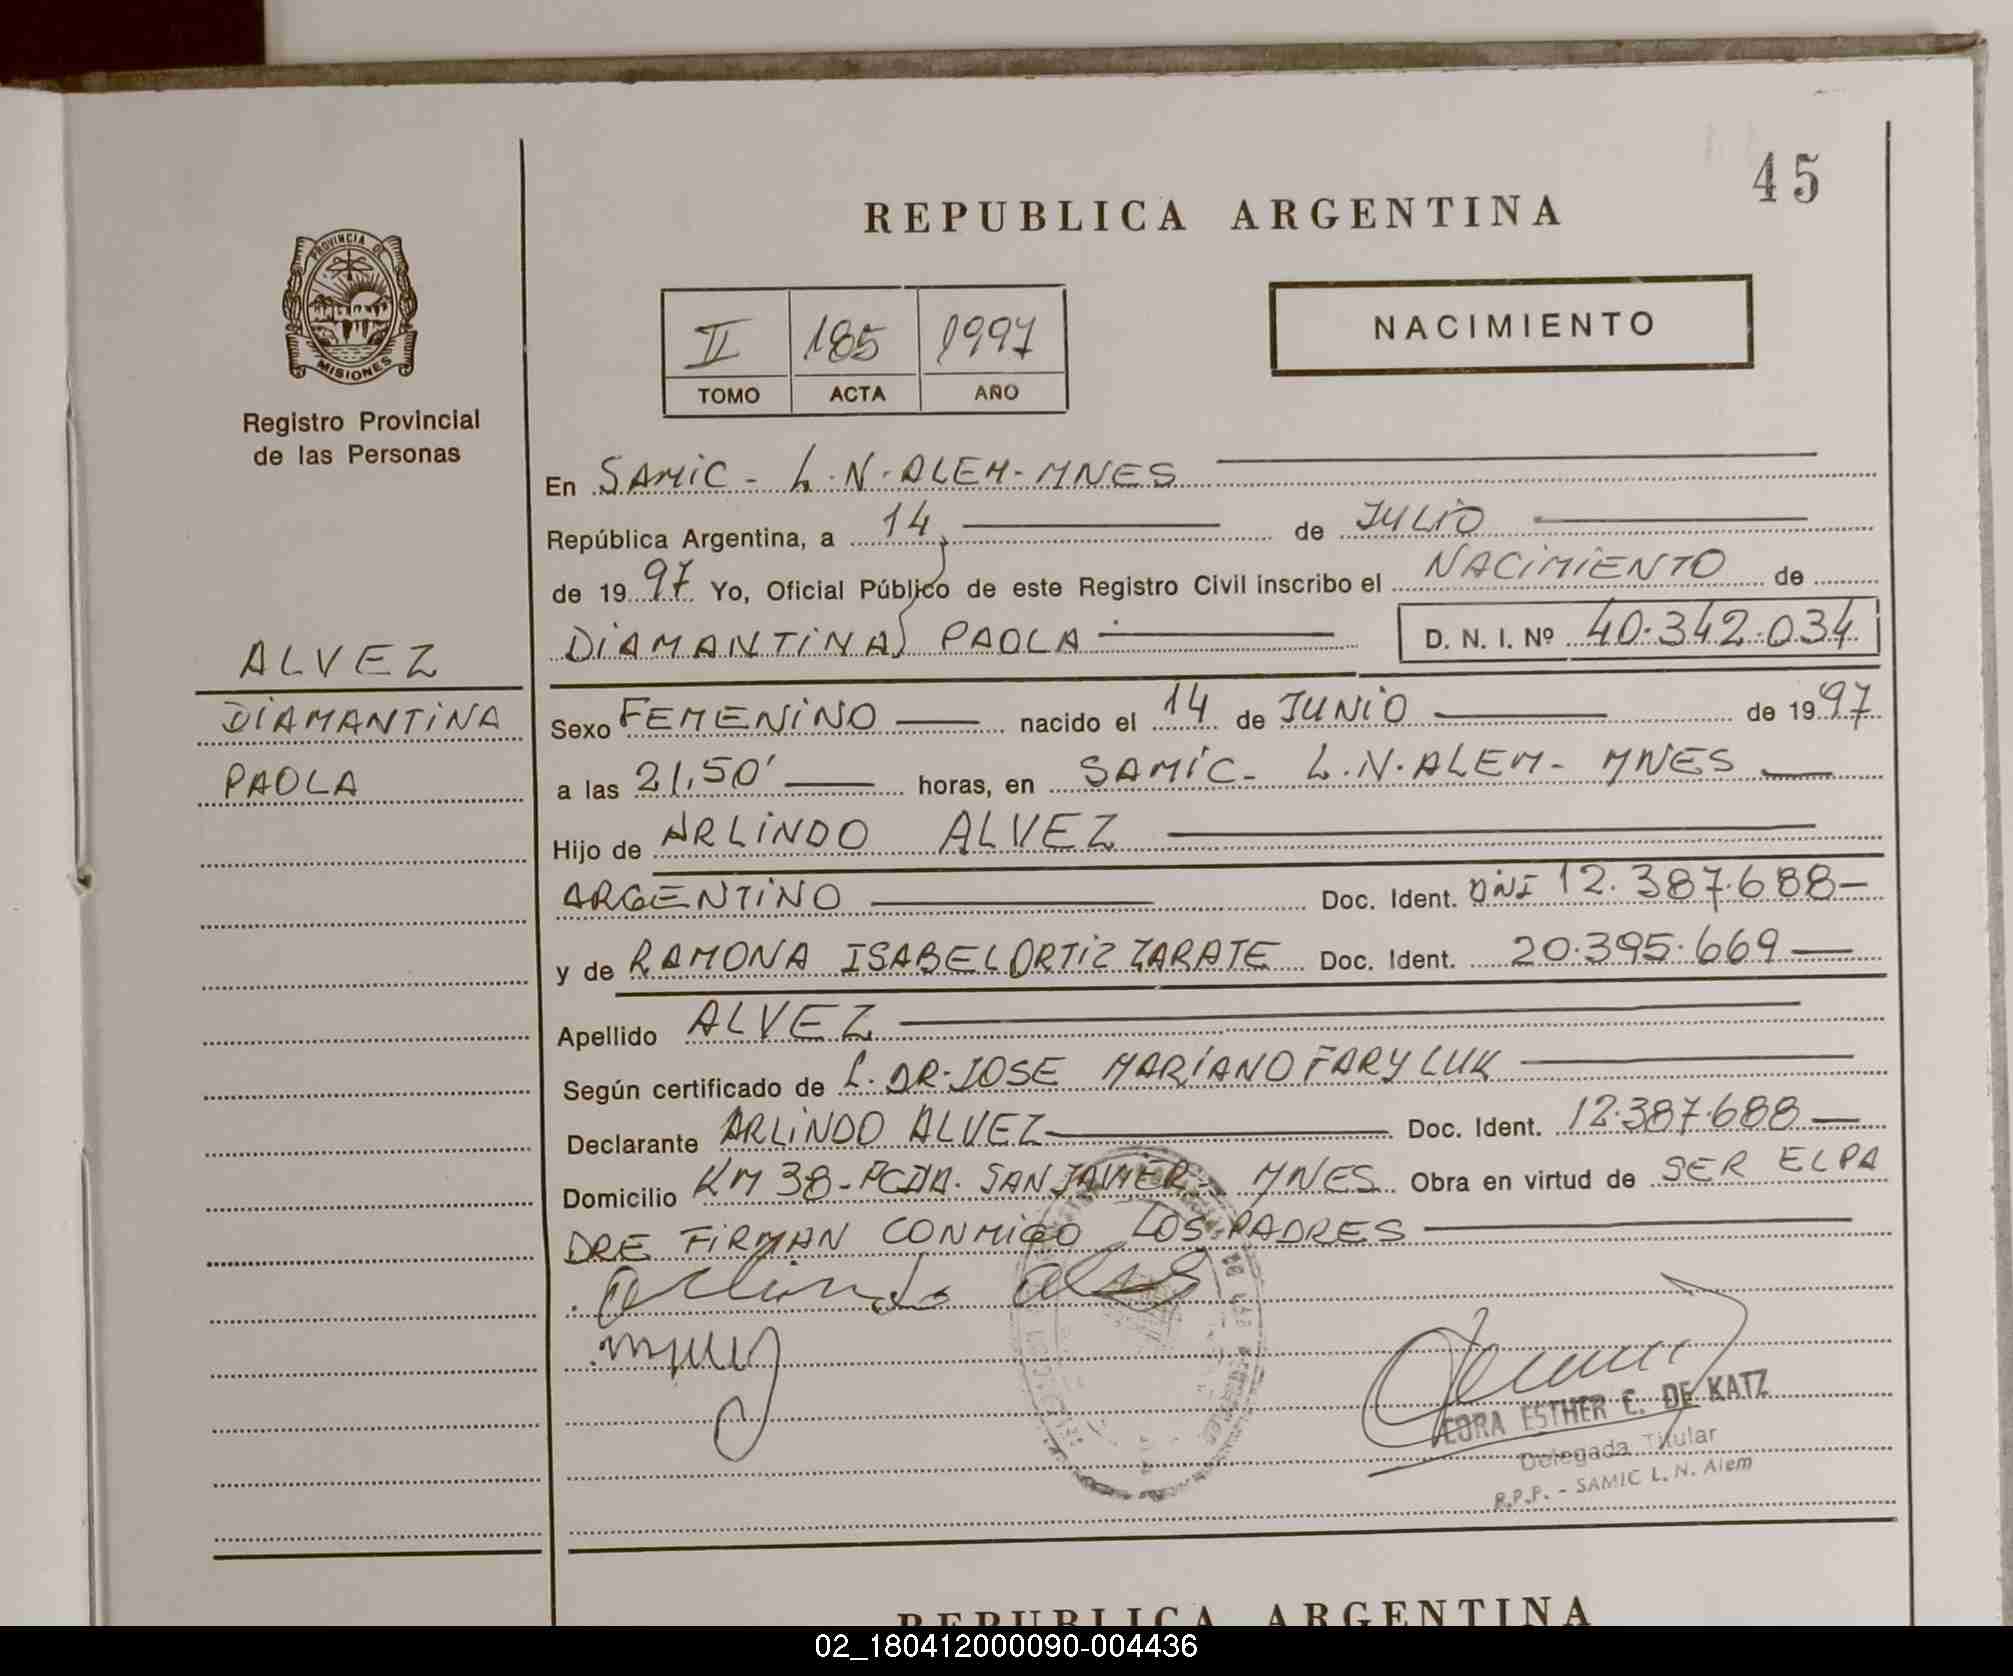 45
REPUBLICA ARGENTINA
PROVINCIA DE
MISIONES
Registro Provincial
de las Personas
II 185 1997
TOMO ACTA AÑO
NACIMIENTO
En SAMIC - L.N. ALEM - MNES
República Argentina, a 14 de JULIO
de 1997 Yo, Oficial Público de este Registro Civil inscribo el NACIMIENTO de
DIAMANTINA PAOLA D. N. I. Nº 40.342.034
ALVEZ
DIAMANTINA
PAOLA
Sexo FEMENINO nacido el 14 de JUNIO de 1997
a las 21,50' horas, en SAMIC - L.N. ALEM - MNES
Hijo de ARLINDO ALVEZ
ARGENTINO Doc. Ident. DNI 12.387.688
y de RAMONA ISABEL ORTIZ ZARATE Doc. Ident. 20.395.669
Apellido ALVEZ
Según certificado de DR. JOSE MARIANO FARYLUK
Declarante ARLINDO ALVEZ Doc. Ident. 12.387.688
Domicilio KM 38 - PCDA. SAN JAVIER - MNES Obra en virtud de SER EL PA
DRE FIRMAN CONMIGO LOS PADRES
Arlindo
ESTHER C. DE KATZ
Delegada Titular
R.P.P. - SAMIC L. N. Alem
REPUBLICA ARGENTINA
02_180412000090-004436